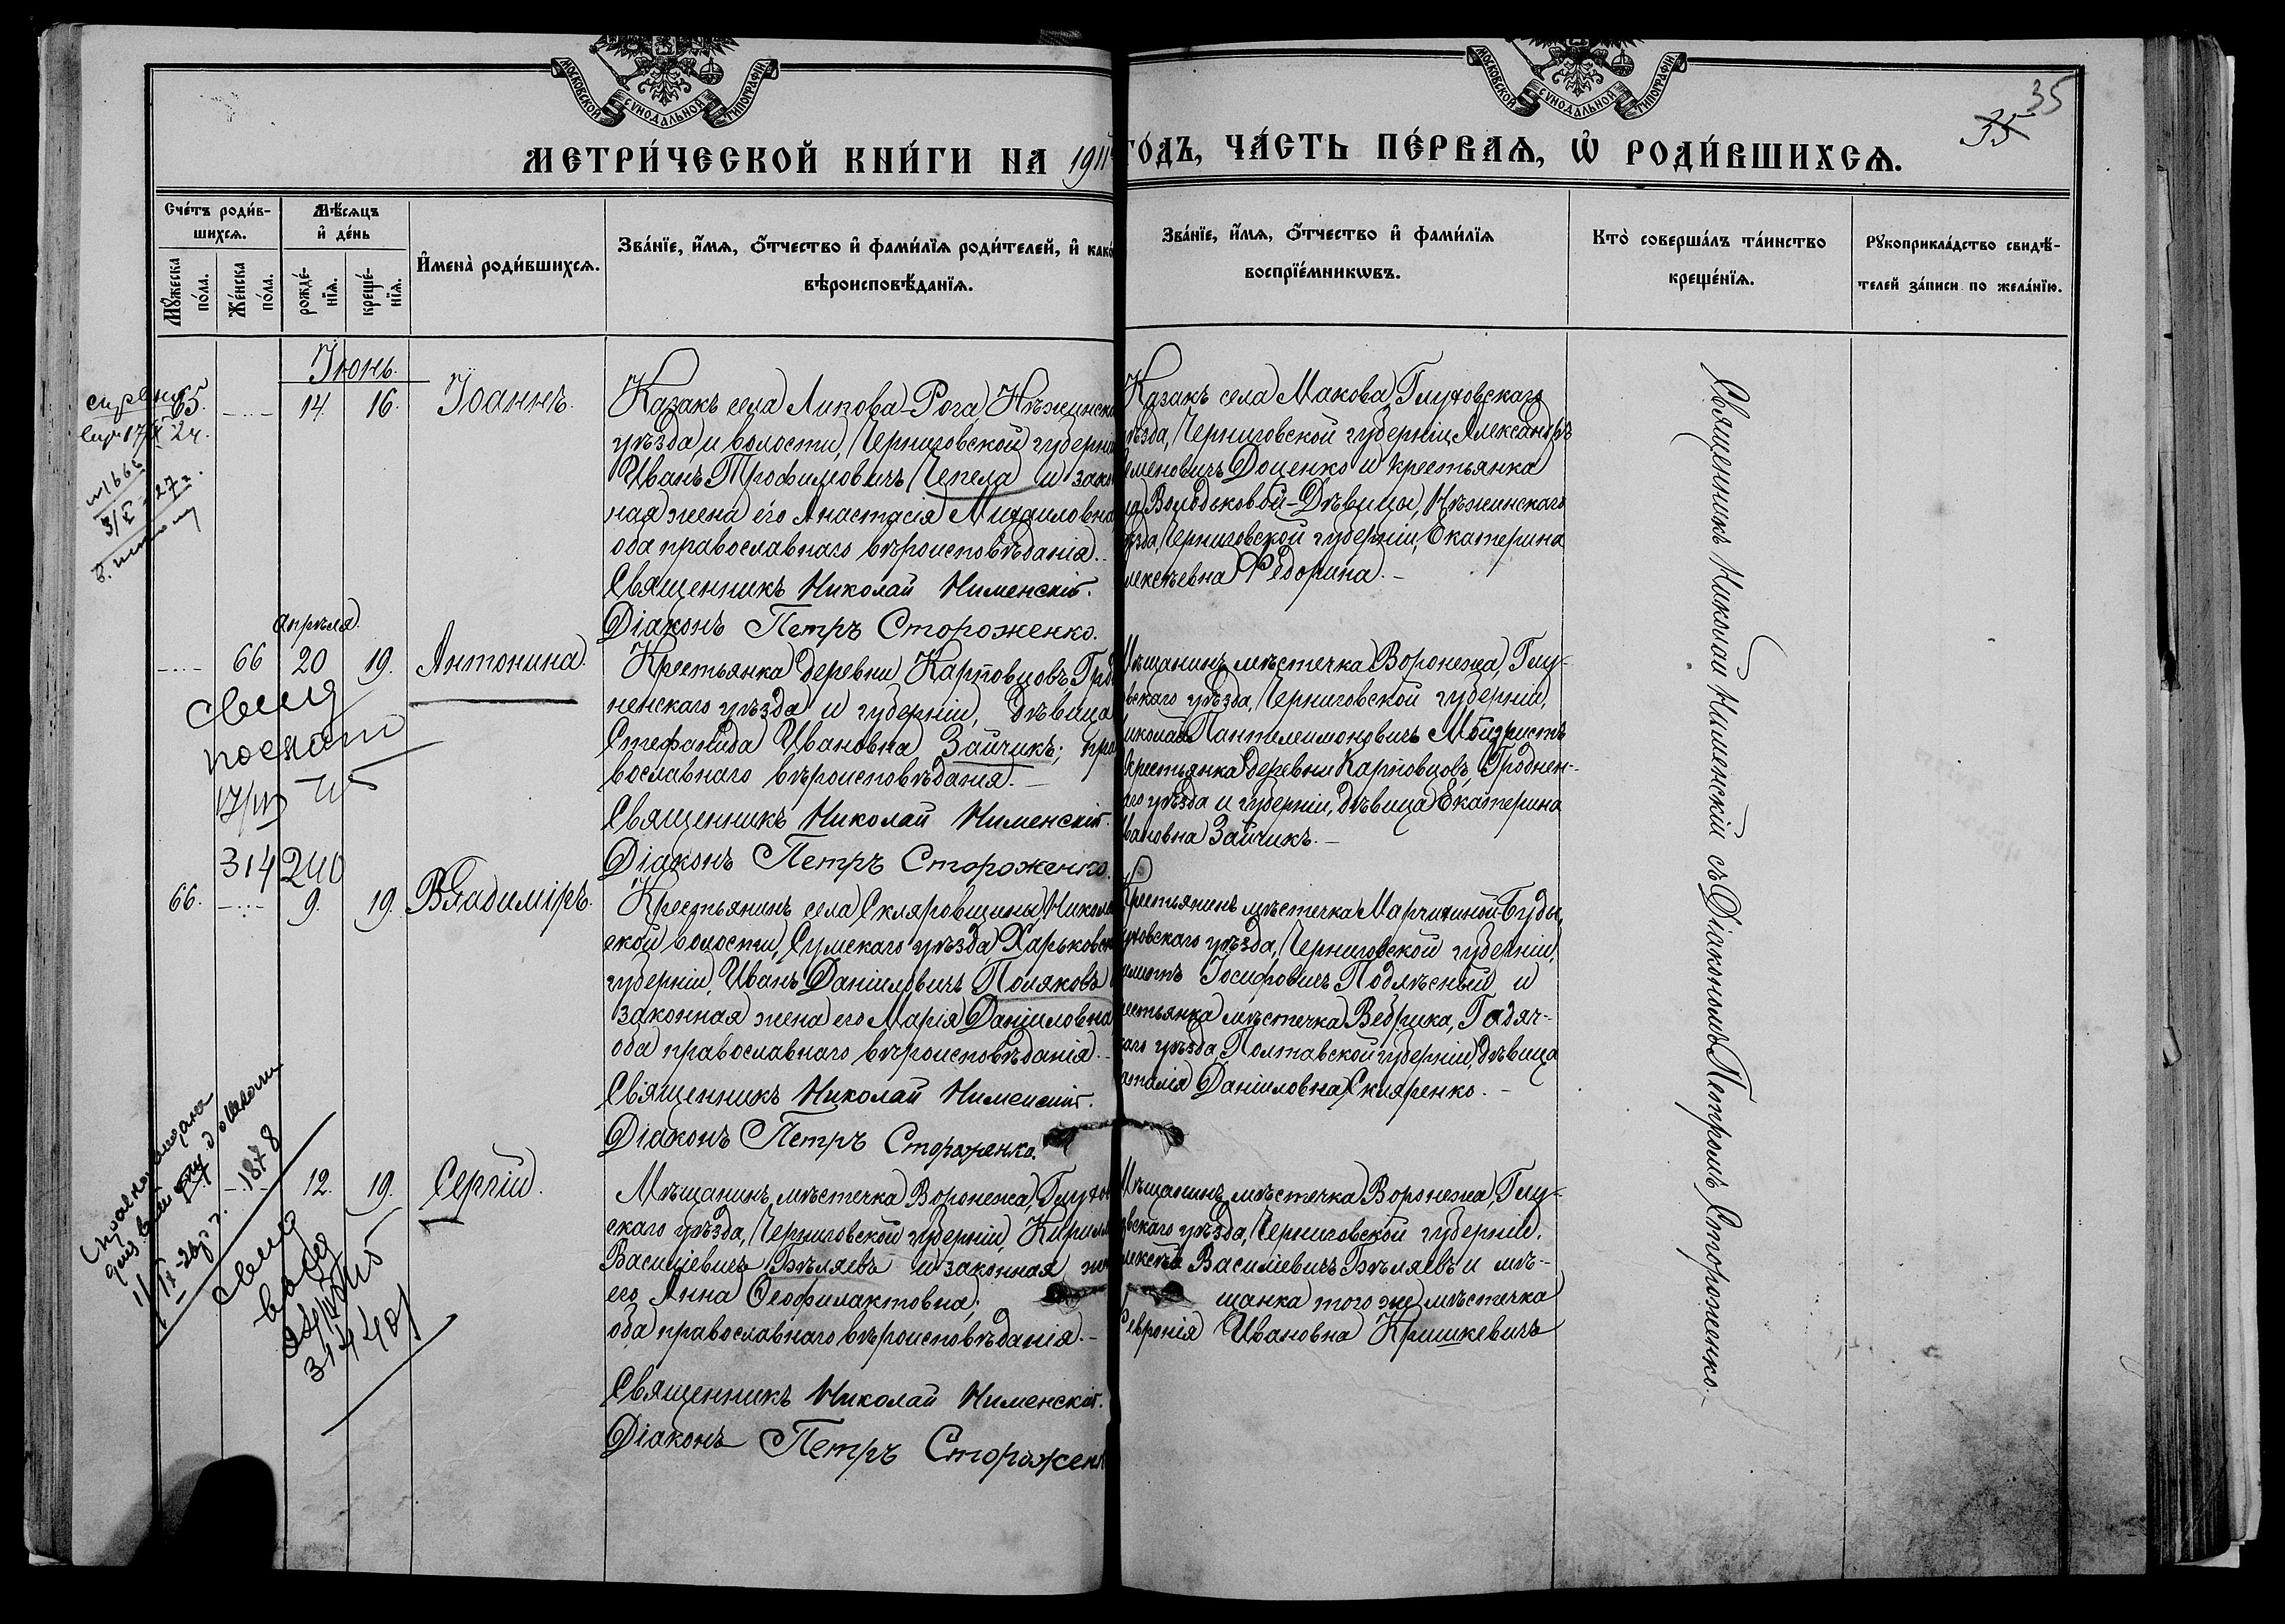 МОСКОВСКОЙ СѴНОДАЛЬНОЙ ТИПОГРАФІИ
МОСКОВСКОЙ СѴНОДАЛЬНОЙ ТИПОГРАФІИ
35
35
МЕТРИ́ЧЕСКОЙ КНИ́ГИ НА 1911
ГО́ДЪ, ЧА́СТЬ ПЕ́РВАѦ, Ѡ҆ РОДИ́ВШИХСѦ.
Сче́тъ роди́в-
шихсѧ.
Мꙋжеска по́ла.
Же́нска по́ла.
Мѣ́сѧцъ
и҆ де́нь
рожде́-
нїѧ.
креще́-
нїѧ.
И҆мена̀ роди́вшихсѧ.
Зва́нїе, и҆́мѧ, ѻ҆́тчество и҆ фами́лїѧ роди́телей, и҆ како́
вѣроисповѣ́данїѧ.
Зва́нїе, и҆́мѧ, ѻ҆́тчество и҆ фами́лїѧ
воспрїе́мникѡвъ.
Кто̀ соверша́лъ та́инство
креще́нїѧ.
Рꙋкоприкла́дство свидѣ́-
телей за́писи по жела́нїю.
Іюнь.
65. 14. 16. Іоаннъ.
Казакъ села Ликова-Рога Нѣжинска
уѣзда и волости, Черниговской губерніи
Иванъ Трофимовичъ Чепела и зако
ная жена его Анастасія Михаиловна
оба православнаго вѣроисповѣданія.
Священникъ Николай Нименскій.
Діаконъ Петръ Стороженко.
Казакъ села Макова, Глуховскаго
уѣзда, Черниговской губерніи Александръ
еменовичъ Доценко и крестьянка
Володьковой-Дѣвицы, Нѣжинскаго
ѣзда, Черниговской губерніи, Екатерина
лексѣевна Федорина.
апрѣля.
66 20 19. Антонина.
Крестьянка деревни Карповцовъ, Грод
ненскаго уѣзда и губерніи, дѣвица
Стефанида Ивановна Зайчикъ; пра
вославнаго вѣроисповѣданія.
Священникъ Николай Нименскій.
Діаконъ Петръ Стороженко.
Мѣщанинъ мѣстечка Воронежа, Глу-
вскаго уѣзда, Черниговской губерніи,
иколай Пантелеимоновичъ
крестьянка деревни Карповцовъ, Гроднен-
аго уѣзда и губерніи, дѣвица Екатерина
вановна Зайчикъ.
314 240
66. 9. 19. Владиміръ.
Крестьянинъ села Скляровщины, Никола
ской волости, Сумскаго уѣзда, Харьковск
губерніи, Иванъ Даніиловичъ Поляковъ
законная жена его Марія Даніиловна
оба православнаго вѣроисповѣданія.
Священникъ Николай Нименскій.
Діаконъ Петръ Стороженко.
Крестьянинъ мѣстечка Марчихиной-Буды,
уховскаго уѣзда, Черниговской губерніи,
Іосифовичъ Подлѣсный и
рестьянка мѣстечка Веприка, Гадяч-
каго уѣзда Полтавской губерніи, дѣвица
аталія Даніиловна Скляренко.
1878
12. 19. Сергій.
Мѣщанинъ мѣстечка Воронежа, Глухов
скаго уѣзда, Черниговской губерніи, Кирилл
Василіевичъ Бѣляевъ и законная же
его Анна Ѳеофилактовна;
оба православнаго вѣроисповѣданія.
Священникъ Николай Нименскій.
Діаконъ Петръ Сторожен
Мѣщанинъ мѣстечка Воронежа, Глу-
овскаго уѣзда, Черниговской губерніи,
лексѣй Василіевичъ Бѣляевъ и мѣ-
щанка того же мѣстечка
Февронія Ивановна Кришкевичъ
Священникъ Николай Нименскій съ Діакономъ Петромъ Стороженко.